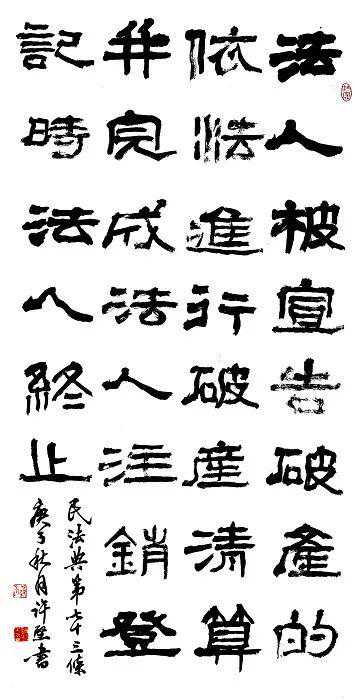 法人被宣告破產的
依法進行破產清算
并完成法人注銷登
記時法人終止
民法典第七十三條
庚子秋月許書